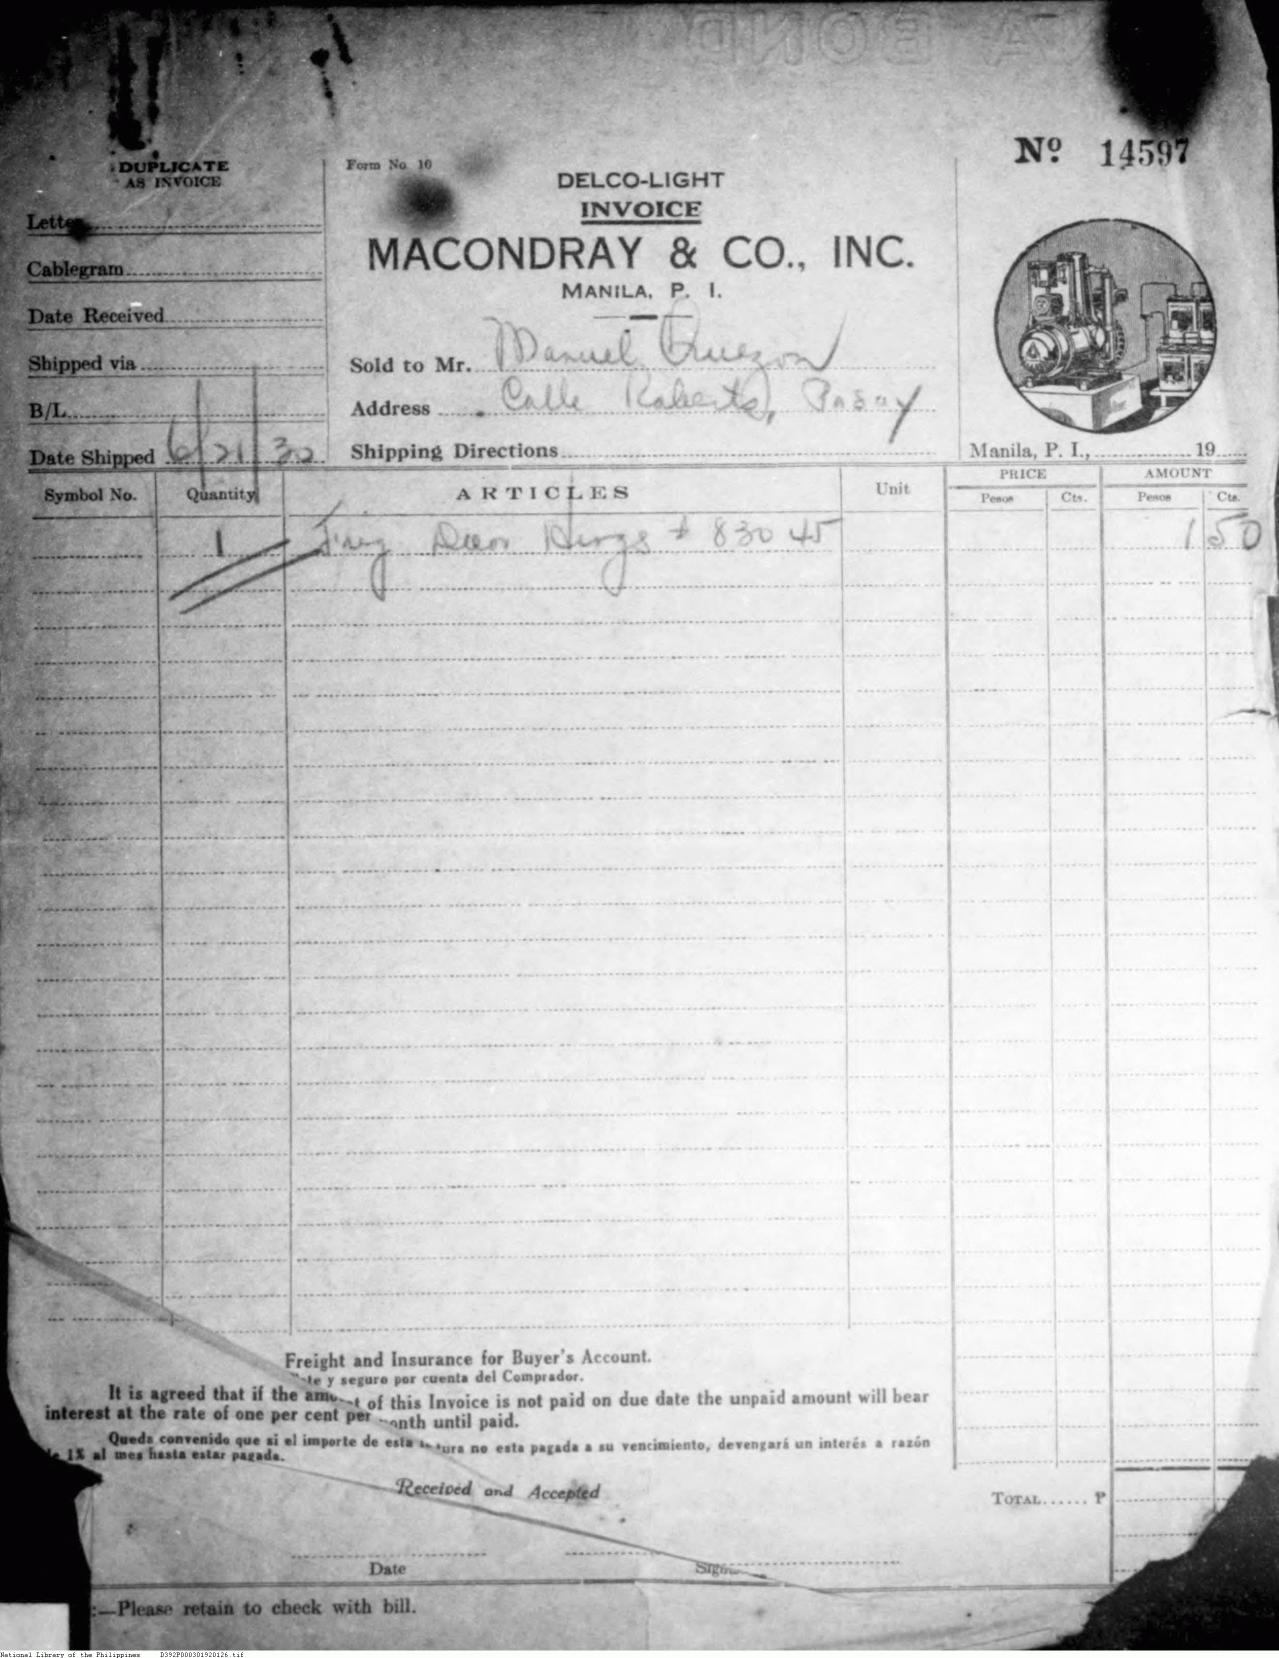 NA BOND
Nº 14597
DUPLICATE
AS INVOICE
Form No 10
DELCO-LIGHT
INVOICE
MACONDRAY & CO., INC.
MANILA, P. I.
Letter
Cablegram
Date Received
Shipped via
B/L
Date Shipped 6/21/32
Sold to Mr. Manuel Quezon
Address Calle Roberts, Pasay
Shipping Directions
Manila, P. I., 19
Symbol No. Quantity ARTICLES Unit PRICE AMOUNT
Pesos Cts. Pesos Cts.
1 Frig Door Hinge # 83045 1 50
Freight and Insurance for Buyer's Account.
y seguro por cuenta del Comprador.
It is agreed that if the of this Invoice is not paid on due date the unpaid amount will bear
interest at the rate of one per cent per month until paid.
Queda convenido que si el importe de esta no esta pagada a su vencimiento, devengará un interés a razón
1% al mes hasta estar pagada.
Received and Accepted
TOTAL...... P
Date
:—Please retain to check with bill.
National Library of the Philippines D392P000301920126.tif